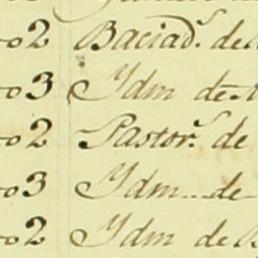 o2 Baciad.ª de
o3 Ydm de
o2 Pastor.ª de
o3 Ydm de
o2 Ydm de